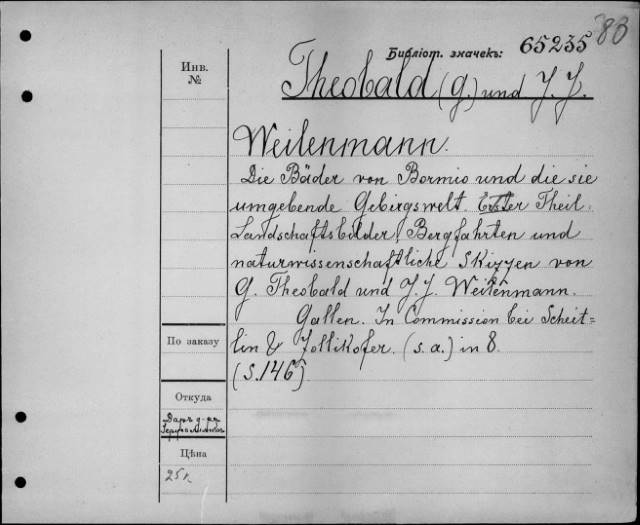 83
Библіот. значекъ: 65235
Инв.
№
Theobald (G.) und J. J.
Weilenmann.
Die Bäder von Bormio und die sie
umgebende Gebirgswelt. Erster Theil.
Landschaftsbilder, Bergfahrten und
naturwissenschaftliche Skizzen von
G. Theobald und J. J. Weilenmann.
Gallen. In Commission bei Scheit-
lin & Zollikofer. (s. a.) in 8.
(S. 146)
По заказу
Откуда
Даръ д-ра
Цѣна
25 к.